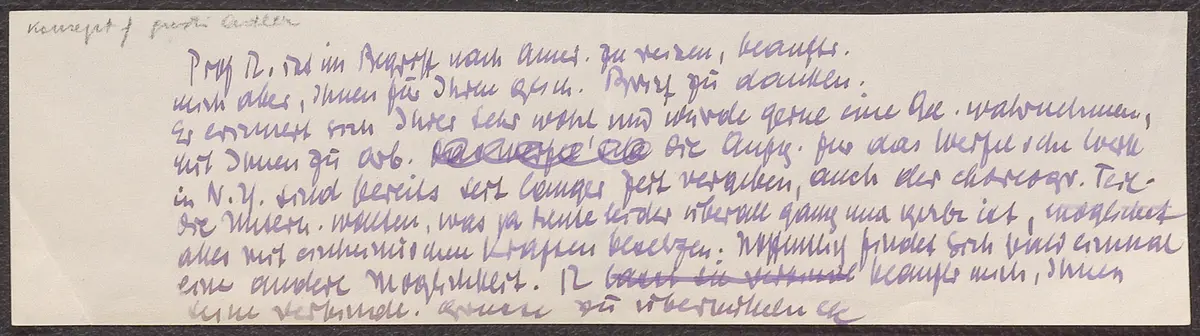 Konzept f Gusti Adler
Prof R. ist im Begriff nach Amer. zu reisen, beauftr.
mich aber, Ihnen für Ihren gesch. Brief zu danken.
Er erinnert sich Ihrer sehr wohl und würde gerne eine Gel. wahrnehmen,
mit Ihnen zu arb. die Aufg. für das Werfelsche Werk
in N.Y. sind bereits seit langer Zeit vergeben, auch der choreogr. Teil.
die Untern. wollten, was ja heute leider überall gang und gäbe ist, möglichst
alles mit einheimischen Kräften besetzen. Hoffentlich findet sich bald einmal
eine andere Möglichkeit. R beauftr mich, Ihnen
seine verbindl. Grüsse zu übermitteln